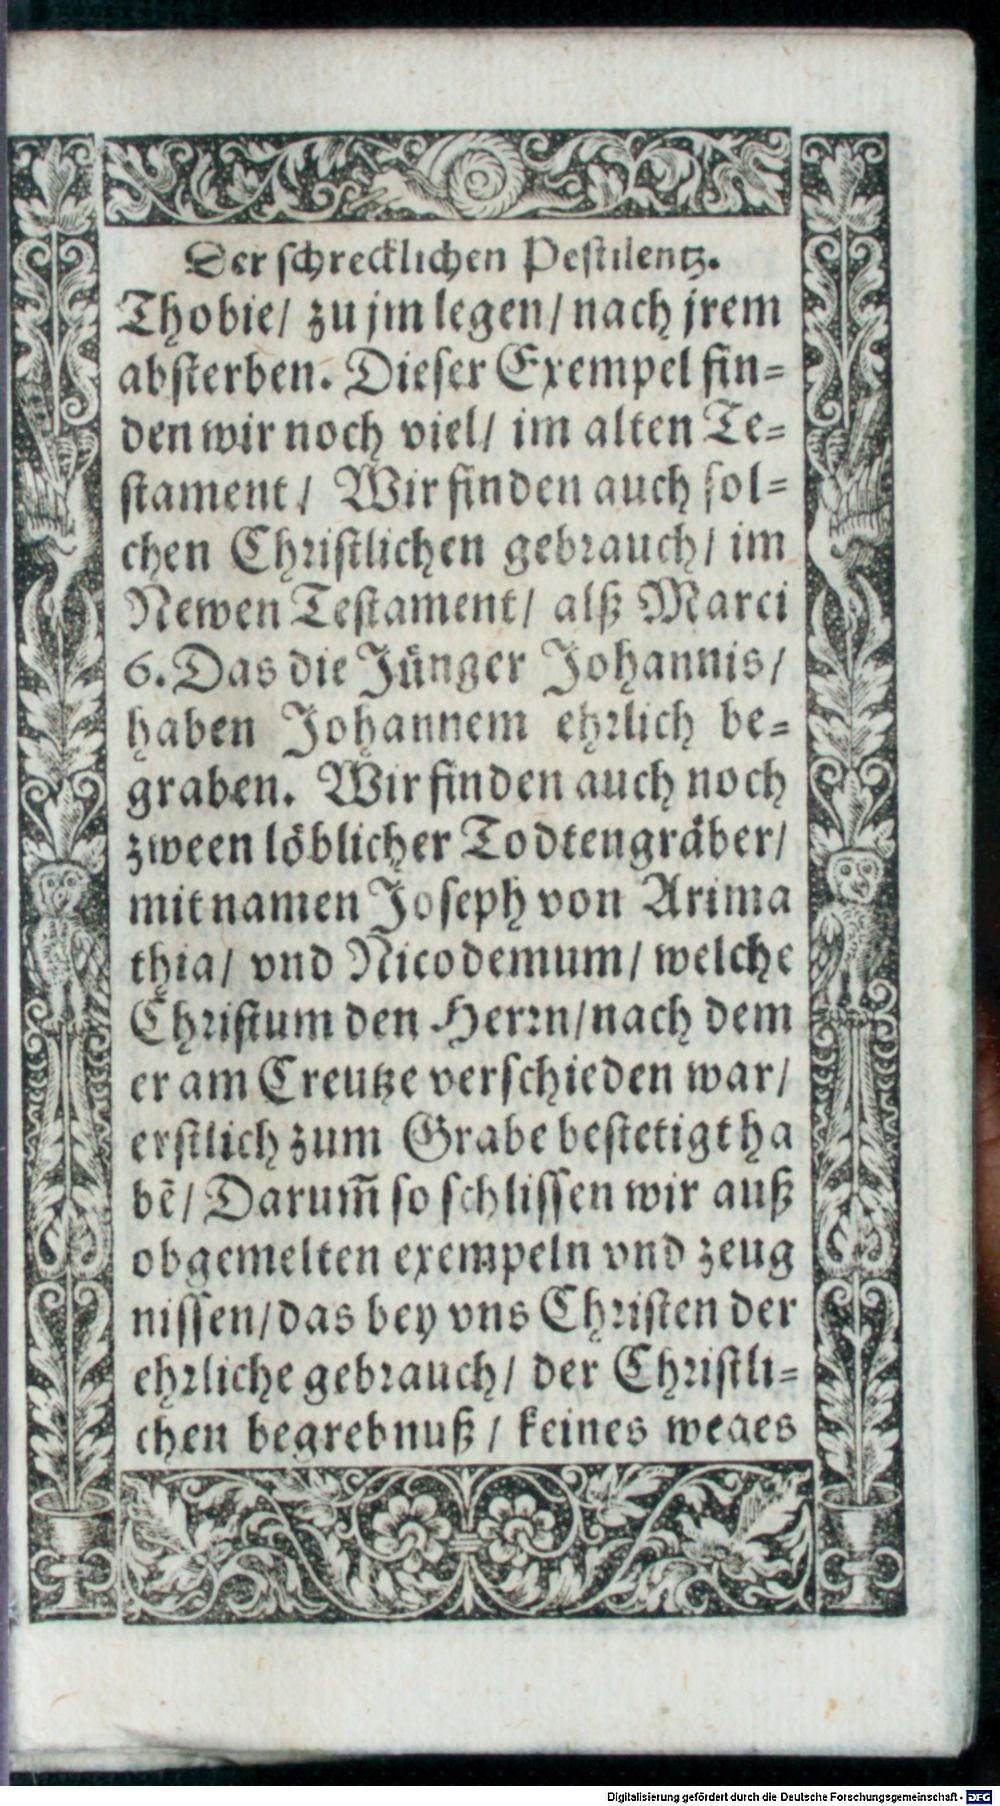 Der schrecklichen Pestilentz.
Thobie/ zu jm legen/ nach jrem
absterben. Dieser Exempel fin=
den wir noch viel/ im alten Te=
stament/ Wir finden auch sol=
chen Christlichen gebrauch/ im
Newen Testament/ alß Marci
6. Das die Jünger Johannis/
haben Johannem ehrlich be=
graben. Wir finden auch noch
zween löblicher Todtengräber/
mit namen Joseph von Arima
thia/ vnd Nicodemum/ welche
Christum den Herrn/ nach dem
er am Creutze verschieden war/
erstlich zum Grabe bestetigt ha
bē/ Darum̄ so schlissen wir auß
obgemelten exempeln vnd zeug
nissen/ das bey vns Christen der
ehrliche gebrauch/ der Christli=
chen begrebnuß/ keines weges
Digitalisierung gefördert durch die Deutsche Forschungsgemeinschaft - DFG